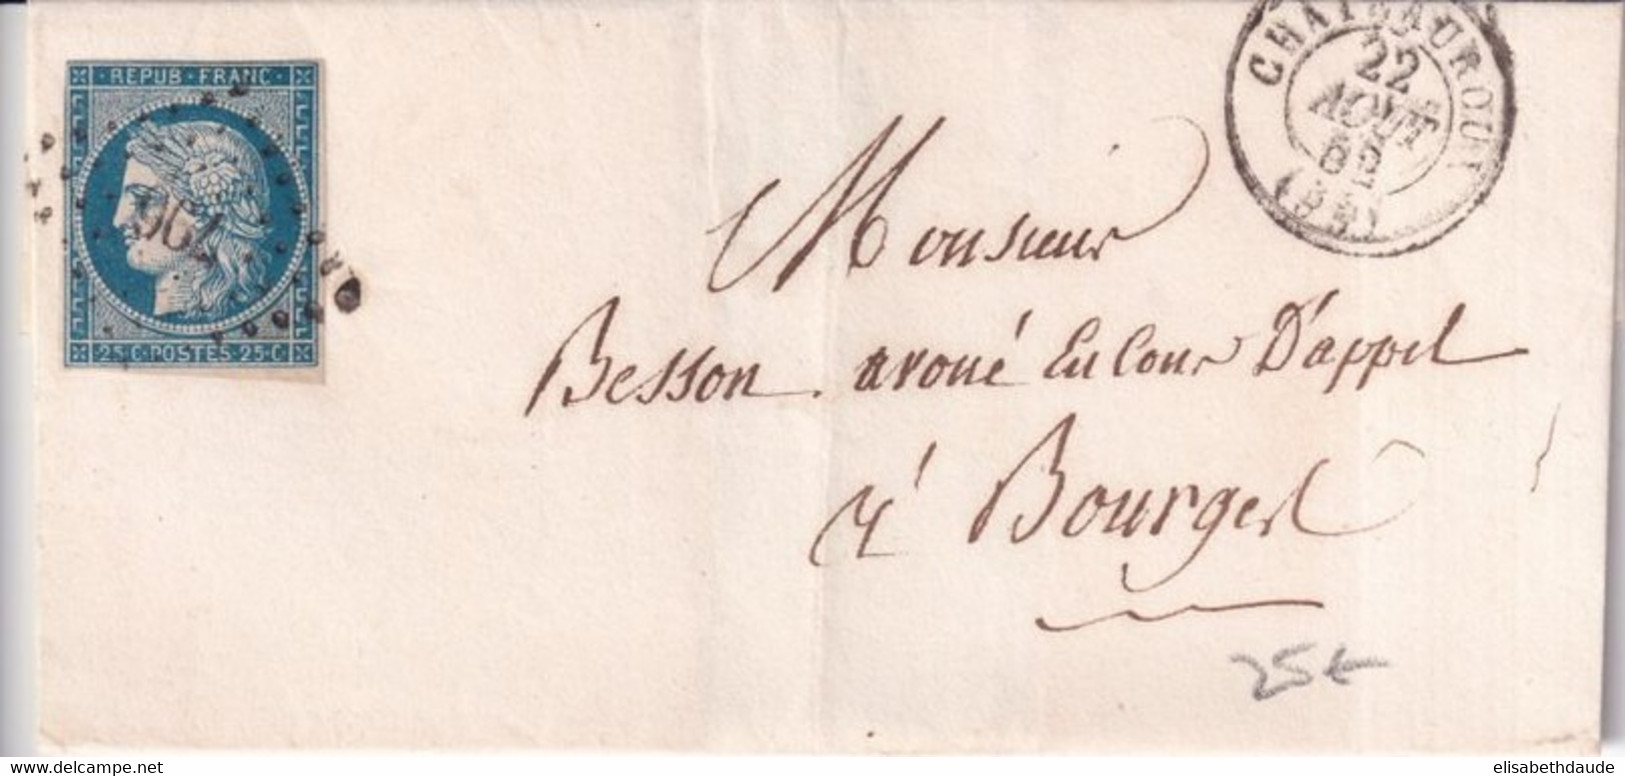 REPUB · FRANC ·
25 · C · POSTES · 25 · C
CHATEAUROUX
22
AOUT
(35)
Monsieur
Besson avoué En Cour D'appel
à Bourges
25€
delcampe.net
elisabethdaude